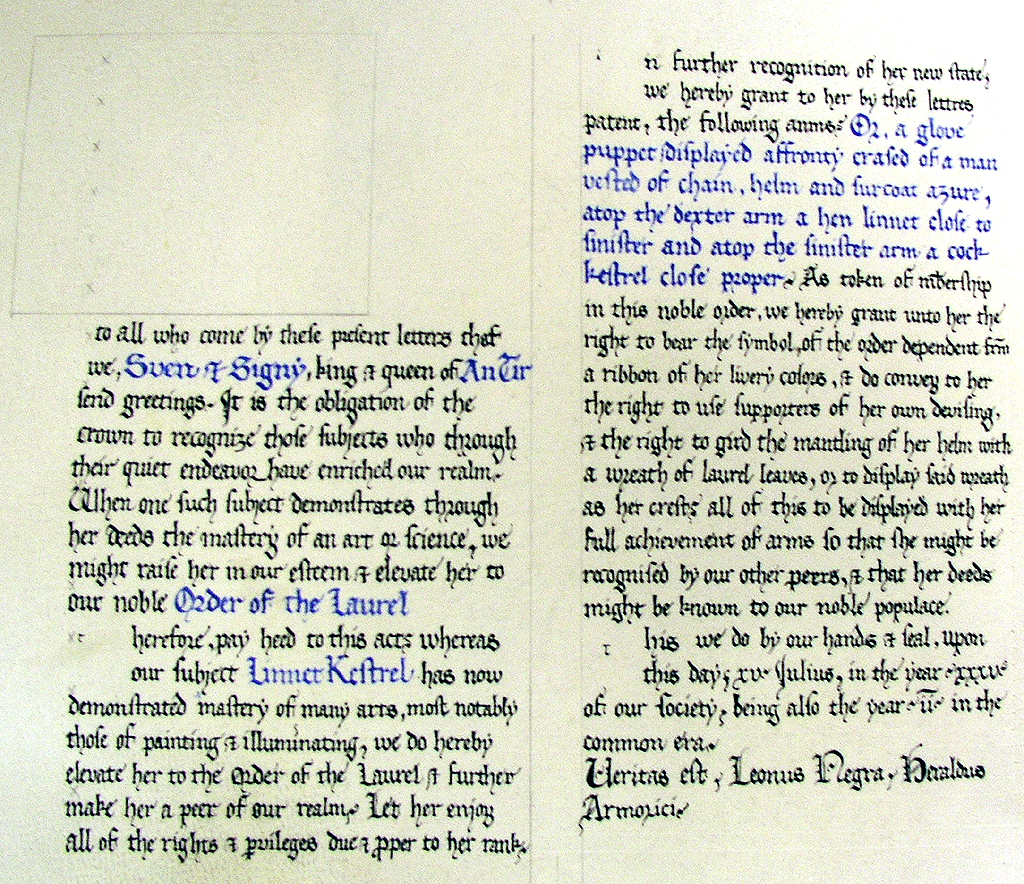 to all who come by these present letters that
we, Sven & Signy, king & queen of AnTir
send greetings. It is the obligation of the
crown to recognize those subjects who through
their quiet endeavor have enriched our realm.
When one such subject demonstrates through
her deeds the mastery of an art or science, we
might raise her in our esteem & elevate her to
our noble Order of the Laurel
herefore, pay heed to this act: whereas
our subject Linnet Kestrel has now
demonstrated mastery of many arts, most notably
those of painting & illuminating, we do hereby
elevate her to the Order of the Laurel & further
make her a peer of our realm. Let her enjoy
all of the rights & privileges due & proper to her rank.
n further recognition of her new state,
we hereby grant to her by these lettres
patent, the following arms: Or, a glove
puppet displayed affronty erased of a man
vested of chain, helm and surcoat azure,
atop the dexter arm a hen linnet close to
sinister and atop the sinister arm a cock
kestrel close proper. As token of mbership
in this noble order, we hereby grant unto her the
right to bear the symbol, of the order dependent from
a ribbon of her livery colors, & do convey to her
the right to use supporters of her own devising,
& the right to gird the mantling of her helm with
a wreath of laurel leaves, or to display said wreath
as her crest; all of this to be displayed with her
full achievement of arms so that she might be
recognised by our other peers, & that her deeds
might be known to our noble populace.
his we do by our hands & seal, upon
this day, xv Julius, in the year xxxv
of our society, being also the year ii in the
common era.
Veritas est, Leonus Negra, Heraldus
Armorici